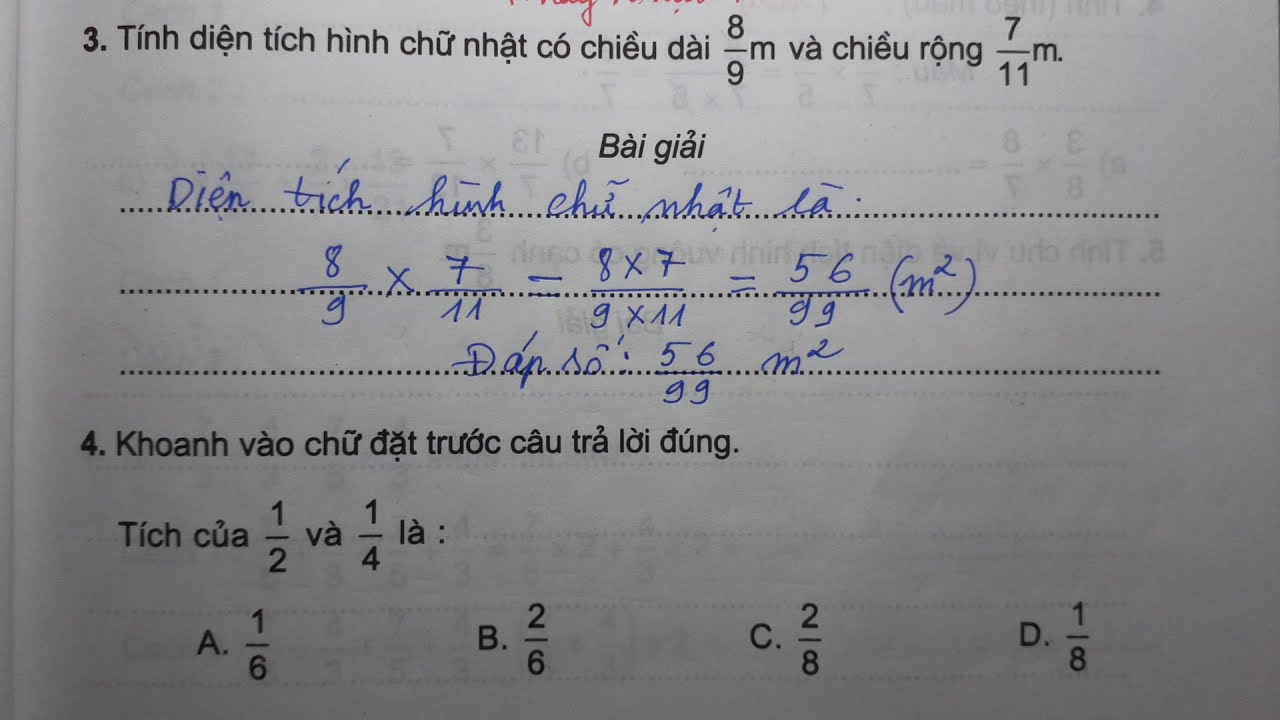 3. Tính diện tích hình chữ nhật có chiều dài 8/9 m và chiều rộng 7/11 m.
Bài giải
Diện tích hình chữ nhật là:
8/9 × 7/11 = 8×7/9×11 = 56/99 (m²)
Đáp số: 56/99 m²
4. Khoanh vào chữ đặt trước câu trả lời đúng.
Tích của 1/2 và 1/4 là :
A. 1/6 B. 2/6 C. 2/8 D. 1/8